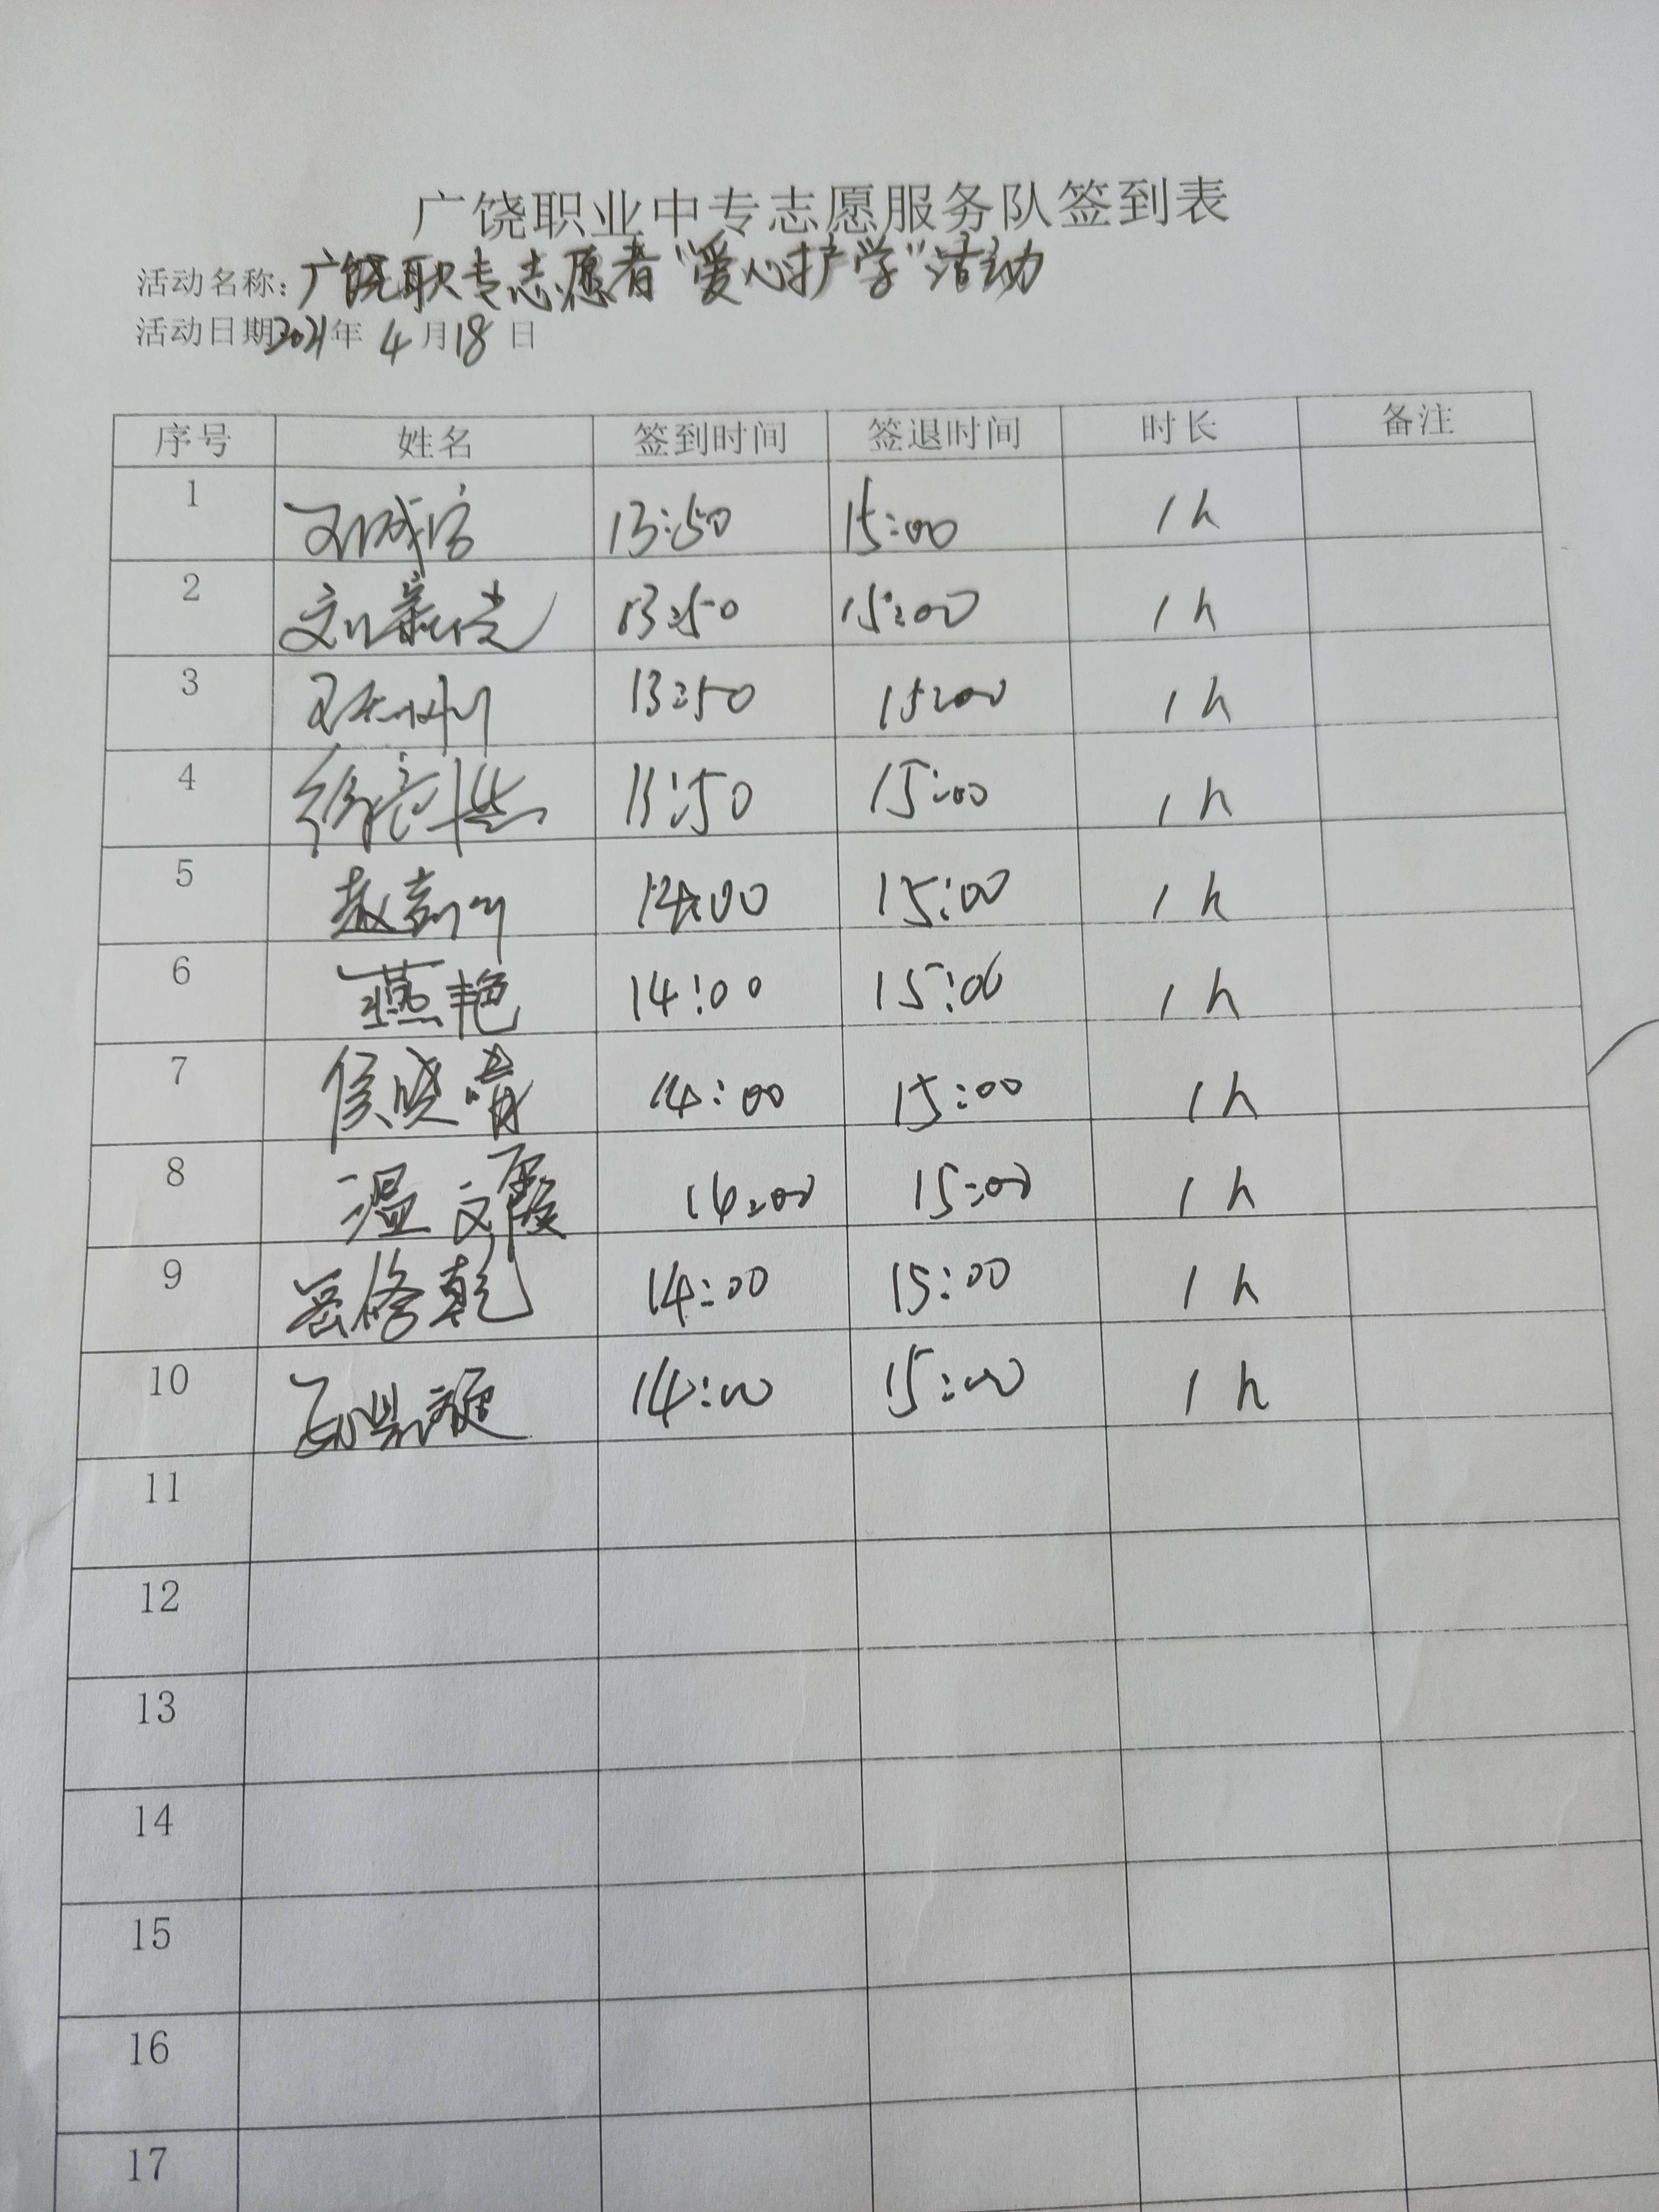 广饶职业中专志愿服务队签到表
活动名称：广饶职专志愿者“爱心护学”活动
活动日期2021年 4 月 18 日
序号 姓名 签到时间 签退时间 时长 备注
1 13:50 15:00 1h
2 13:50 15:00 1h
3 13:50 15:00 1h
4 13:50 15:00 1h
5 14:00 15:00 1h
6 燕艳 14:00 15:00 1h
7 侯晓晴 14:00 15:00 1h
8 温文霞 14:00 15:00 1h
9 岳修乾 14:00 15:00 1h
10 14:00 15:00 1h
11
12
13
14
15
16
17